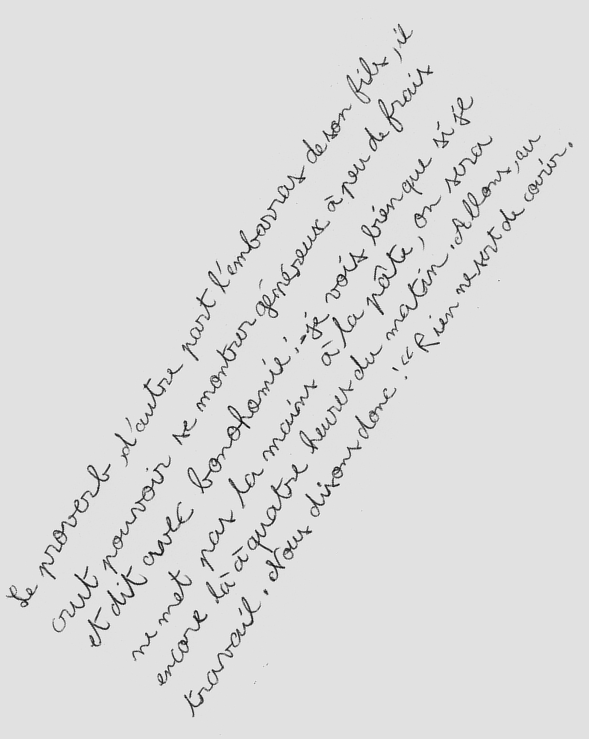 Le proverb d'autre part l'embarras de son fils, il
crut pouvoir se montrer généreux à peu de frais
et dit avec bonohomie : - je vois bien que si je
ne met pas la mains à la pâte, on sera
encore là à quatre heures du matin. Allons, au
travail. Nous disons donc : « Rien ne sert de courir.